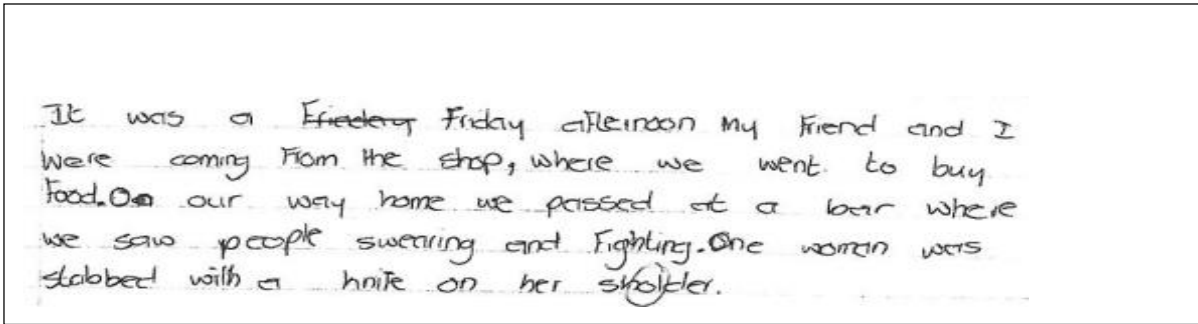 It was a Frieday Friday afternoon my friend and I
were coming From the shop, where we went to buy
food. On our way home we passed at a bar where
we saw people swearing and Fighting. One woman was
stabbed with a knife on her sholder.